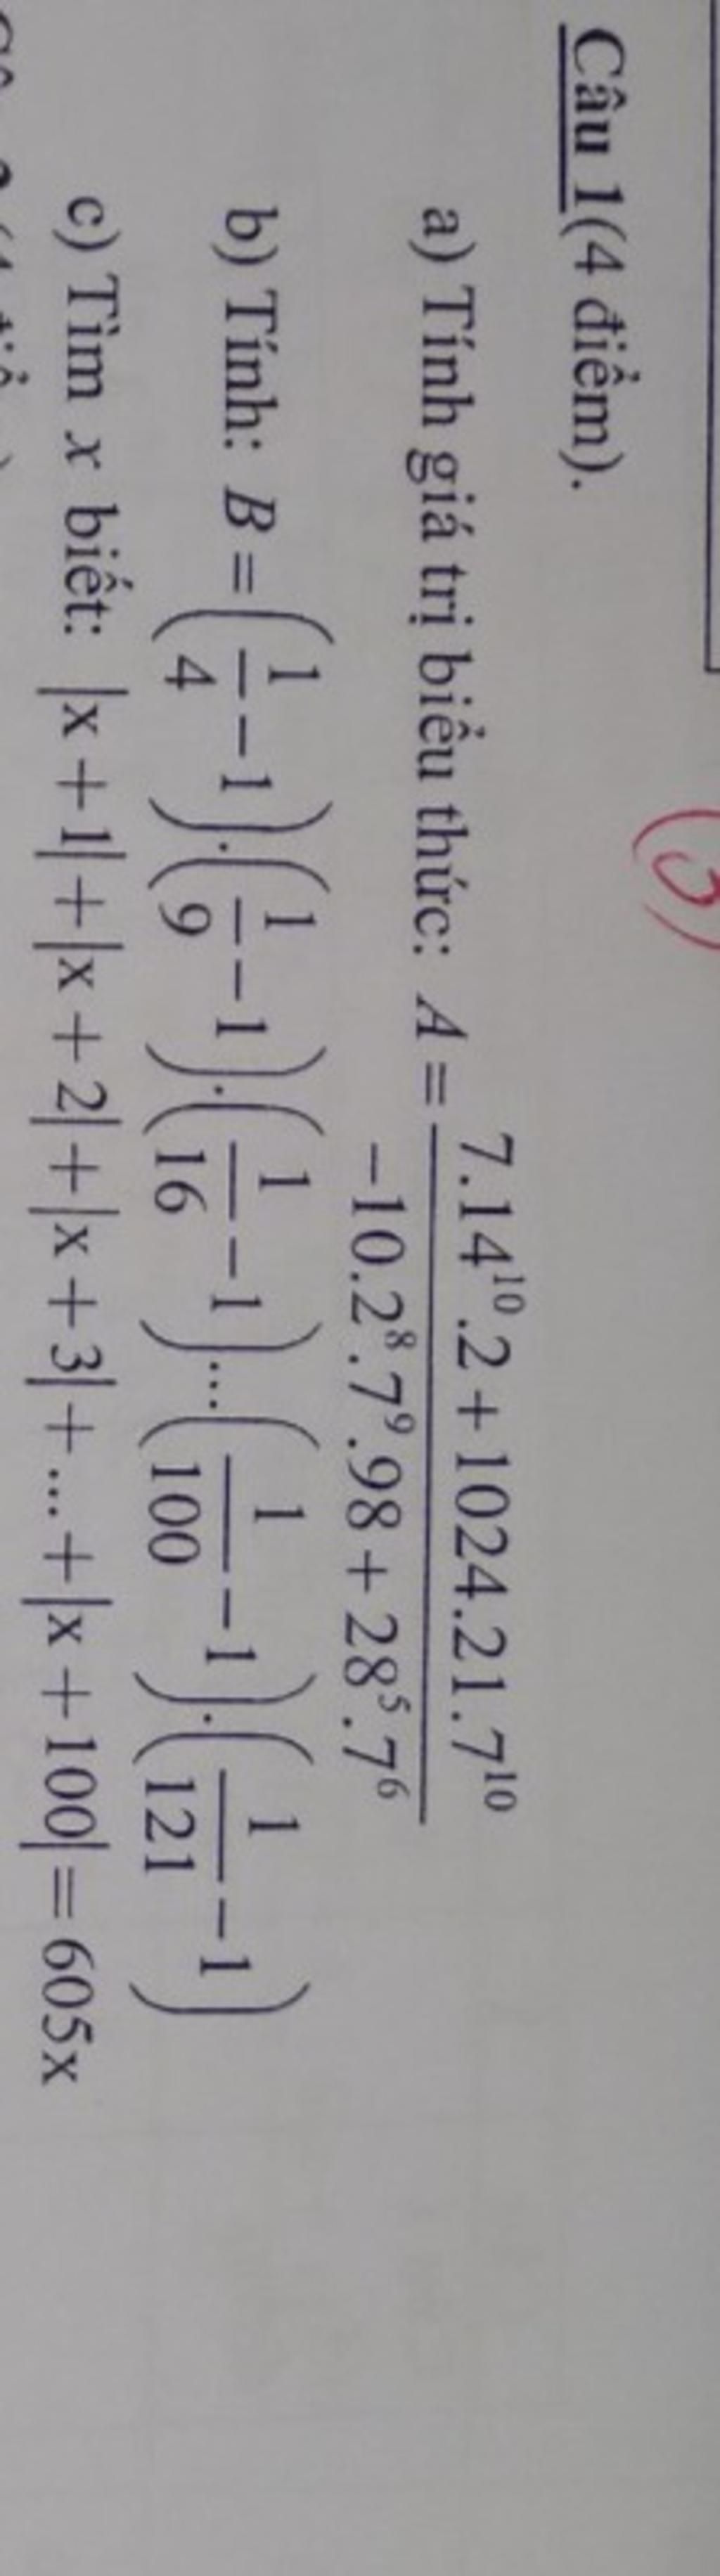 (3)
Câu 1(4 điểm).
a) Tính giá trị biểu thức: A = (7.14¹⁰.2 + 1024.21.7¹⁰)/(−10.2⁸.7⁹.98 + 28⁵.7⁶)
b) Tính: B = (1/4 − 1).(1/9 − 1).(1/16 − 1)...(1/100 − 1).(1/121 − 1)
c) Tìm x biết: |x + 1| + |x + 2| + |x + 3| + ... + |x + 100| = 605x